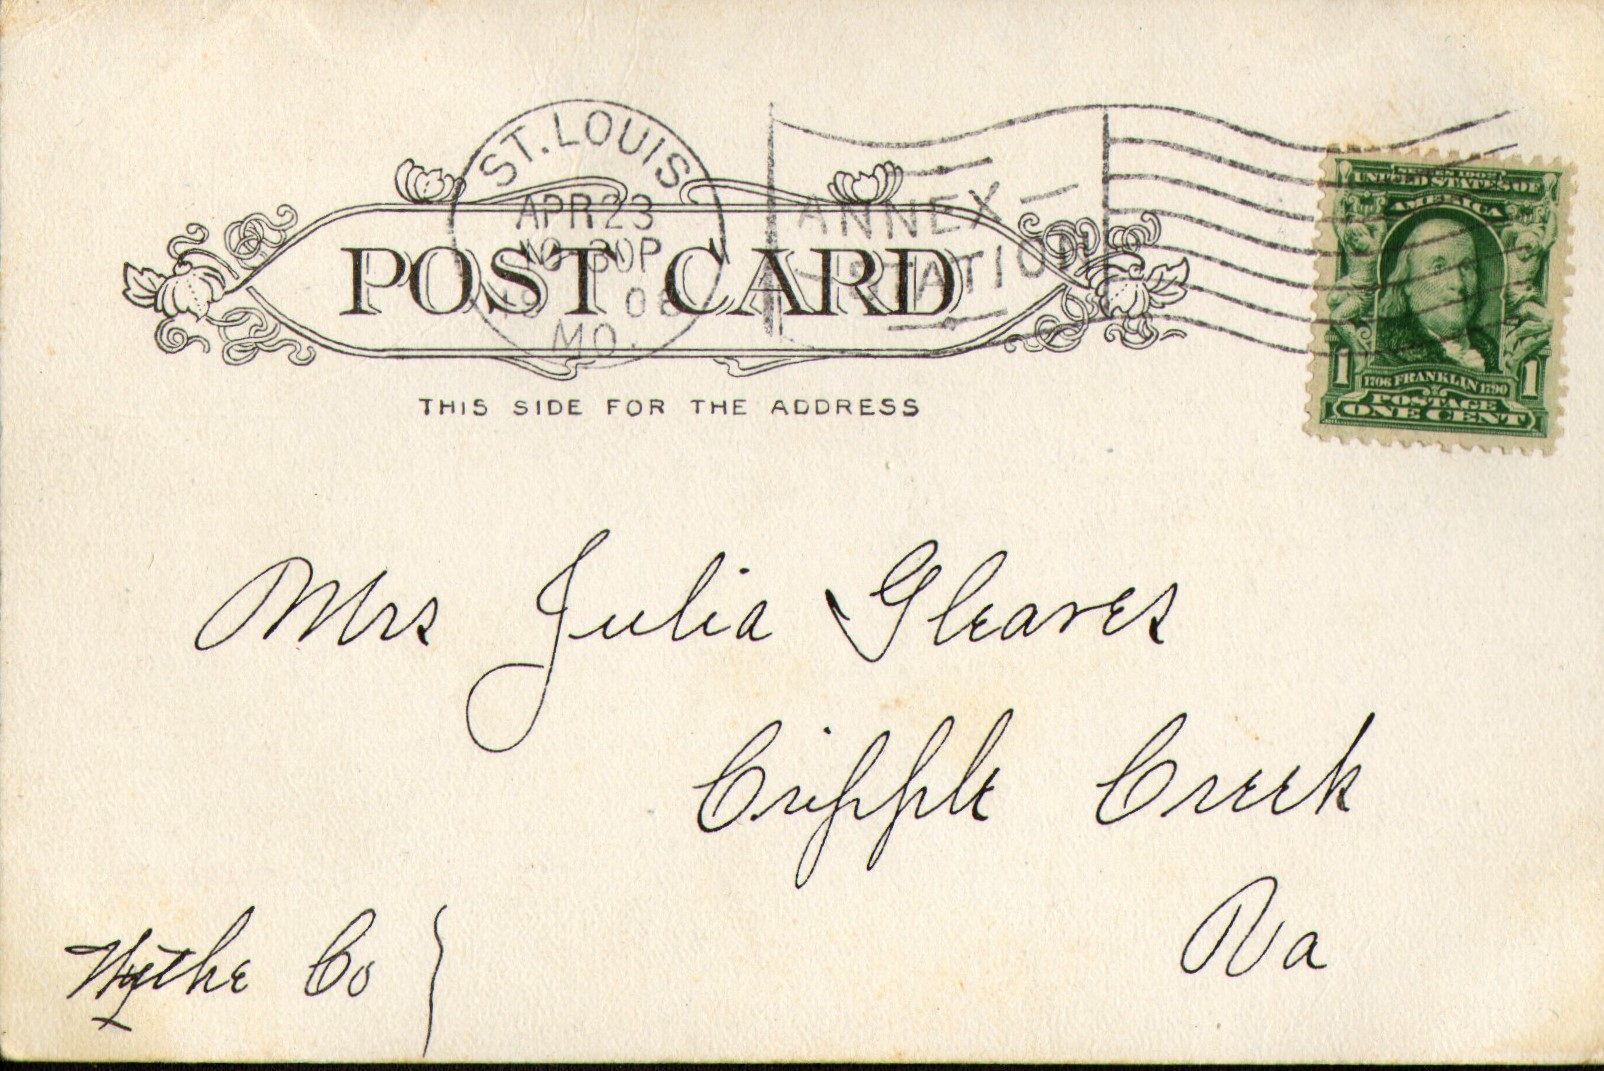 ST. LOUIS
APR 23
30P
08
MO.
ANNEX
STATION
POST CARD
THIS SIDE FOR THE ADDRESS
SERIES 1902
UNITED STATES OF
AMERICA
1 1706 FRANKLIN 1790 1
POSTAGE
ONE CENT
Mrs Julia Gleaves
Cripple Creek
Va
Wythe Co